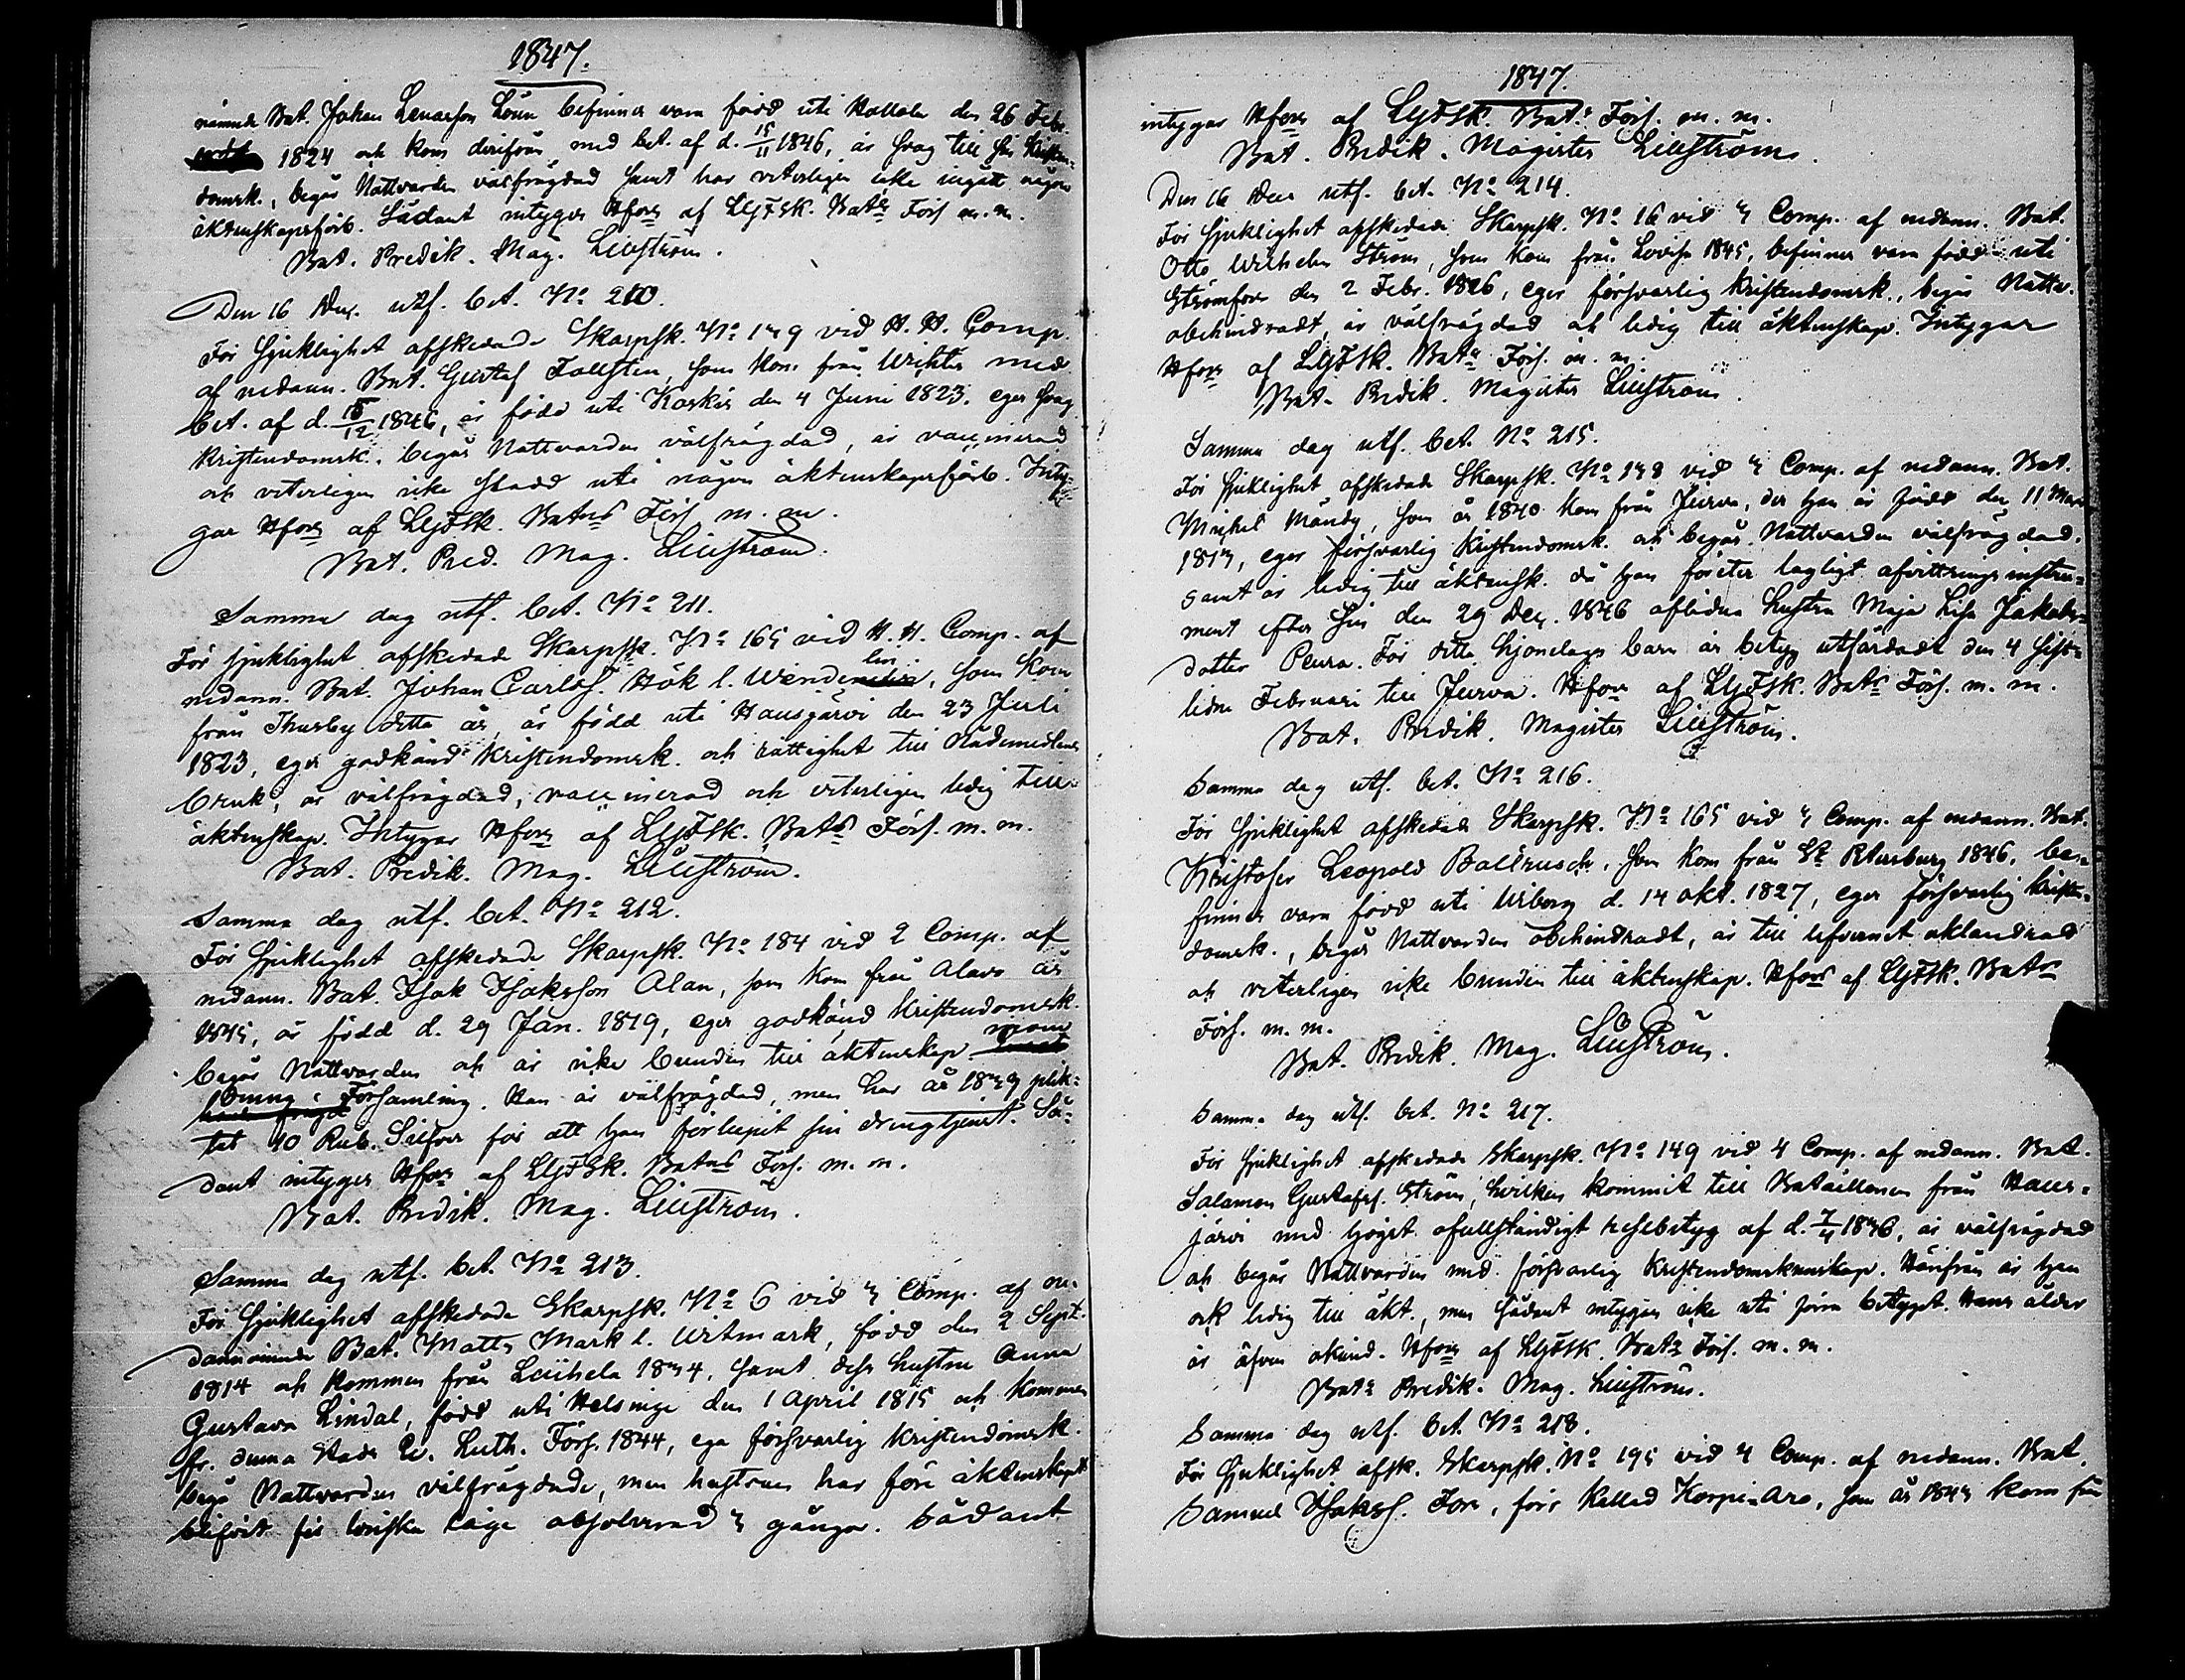 1847.
nämnde Bat. Johan Lenarsson Löun befinnes vara född uti Hollola den 26 Febr.
1824 och kom derifrån med bet. af d. 15/11 1846, är svag till sin Kristen-
domsk., begår Nattvarden välfrägdad samt har veterligen icke ingått någon
äktenskapsförb. Sådant intygar Hfors af LGFSk. Bats Förs m.m.
Bat. Predik. Mag. Liliström.
Den 16 Dec. utf. bet. No 210.
För sjuklighet afskedade Skarpsk. No 179 vid H. H. Comp.
af nedann. Bat. Gustaf Fallsten, som kom från Wichtis med
bet. af d. 15/12 1846, är född uti Karkis den 4 Juni 1823, eger svag
Kristendomsk. begår Nattvarden välfrägdad, är vaccinerad
och veterligen icke stadd uti någon äktenskapsförb. Inty-
gar Hfors af LGFSk. Batns Förs m. m.
Bat. Pred. Mag. Liliström.
Samma dag utf. bet. No 211.
För sjuklighet afskedade Skarpsk. No 165 vid H. H. Comp. af
nedann. Bat. Johan Carlss. Hök l. Wendelin, som kom
från Thusby detta år, är född uti Hausjärvi den 23 Juli
1823, eger godkänd Kristendomsk. och rättighet till Nådemedlens
bruk, är välfrägdad, vaccinerad och veterligen ledig till
äktenskap. Intygar Hfors af LGFSk. Bats Förs. m. m.
Bat. Predik. Mag. Liliström.
Samma dag utf. bet. No 212.
För sjuklighet afskedade Skarpsk. No 184 vid 2 Comp. af
nedann. Bat. Isak Isaksson Alan, som kom från Alavo år
1845, är född d. 29 Jan. 1819, eger godkänd Kristendomsk.
begår Nattvarden och är icke bunden till äktenskap inom
denna Församling. Han är välfrägdad, men har år 1839 plik-
tat 10 Rub. Silfver för att han förlupit sin drengtjenst. Så-
dant intygar Hfors af LGFSk. Batns Förs. m. m.
Bat. Predik. Mag. Liliström.
Samma dag utf. bet. No 213.
För sjuklighet afskedade Skarpsk. No 6 vid 3 Comp. af ne-
dannämnde Bat. Matts Mark l. Witmark, född den 2 Sept.
1814 och kommen från Laihela 1834, samt dess hustru Anna
Gustava Lindal, född uti Helsinge den 1 April 1815 och kommen
fr. denna Stads Ev. Luth. Förs. 1844, ega försvarlig Kristendomsk.
begå Nattvarden välfrägdade, men hustrun har före äktenskapet
blifvit för löniska läge absolverad 3 gånger. Sådant
1847.
intygar Hfors af LGFSk. Bats Förs. m. m.
Bat. Predik. Magister Liliström.
Den 16 Dec utf. bet. No 214.
För sjuklighet afskedade Skarpsk. No 16 vid 3 Comp. af nedann. Bat.
Otto Wilhelm Ström, som kom från Lovisa 1845, befinnes vara född uti
Strömfors den 2 Febr. 1826, eger försvarlig kristendomsk., begår Nattv.
obehindradt, är välfrägdad och ledig till äktenskap. Intygar
Hfors af LGFSk. Bats Förs. m. m.
Bat. Predik. Magister Liliström.
Samma dag utf. bet. No 215.
För sjuklighet afskedade Skarpsk. No 138 vid 3 Comp. af nedann. Bat.
Michel Mandy, som år 1840 kom från Jurva, der han är född den 11 Mars
1813, eger försvarlig Kristendomsk. och begår Nattvarden välfrägdad.
samt är ledig till äktensk. då han företer lagligt afvittrings instru-
ment efter sin den 29 Dec. 1846 aflidna hustru Maja Lisa Jakobs-
dotter Peura. För detta hjonelags barn är betyg utfärdadt den 4 sist-
lidne Februari till Jurva. Hfors af LGFSk. Bats Förs. m. m.
Bat. Predik. Magister Liliström.
Samma dag utf. bet. No 216.
För sjuklighet afskedade Skarpsk. No 165 vid 3 Comp. af nedann. Bat.
Kristofer Leopold Ballrusch, som kom från St Petersburg 1846, be-
finnes vara född uti Wiborg d. 14 okt. 1827, eger försvarlig kristen-
domsk., begår Nattvarden obehindradt, är till lefvernet oklandrad
och veterligen icke bunden till äktenskap. Hfors af LGFSk. Bats
Förs. m. m.
Bat. Predik. Mag. Liliström.
Samma dag utf. bet. No 217.
För sjuklighet afskedade Skarpsk. No 149 vid 4 Comp. af nedann. Bat.
Salamon Gustafss. Ström, hvilken kommit till Bataillonen från Haus-
järvi med högst ofullständigt resebetyg af d. 7/4 1846, är välfrägdad
och begår Nattvarden med försvarlig Kristendomskunskap. Härifrån är han
ock ledig till äkt., men sådant intygas icke uti förra betyget. Hans ålder
är äfven okänd. Hfors af LGFSk. Bats Förs. m. m.
Bats Predik. Mag. Liliström.
Samma dag utf. bet. No 218.
För sjuklighet afsk. Skarpsk. No 195 vid 4 Comp. af nedann. Bat.
Samuel Isakss. Fors, förr kallad Korpi-Aro, som år 1843 kom från